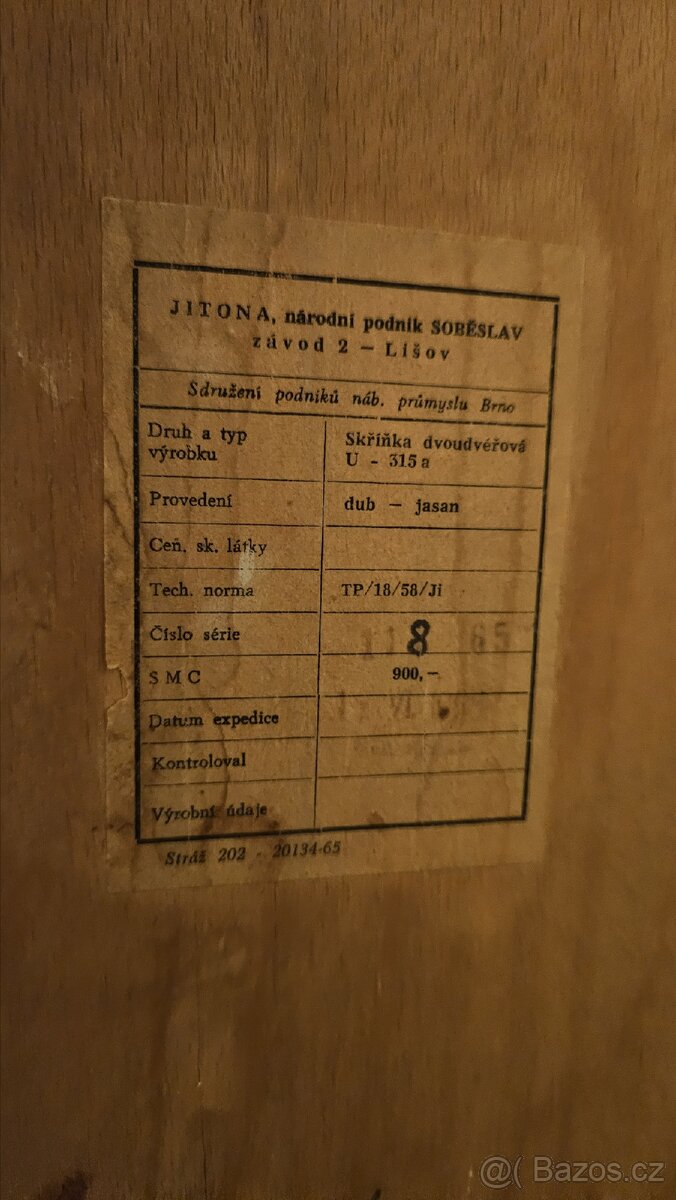 JITONA, národní podnik SOBĚSLAV
závod 2 — Lišov
Sdružení podniků náb. průmyslu Brno
Druh a typ výrobku
Skříňka dvoudvéřová
U - 315 a
Provedení
dub — jasan
Ceň. sk. látky
Tech. norma
TP/18/58/Ji
Číslo série
8 65
SMC
900,—
Datum expedice
VI.
Kontroloval
Výrobní údaje
Stráž 202 - 20134-65
@( Bazos.cz